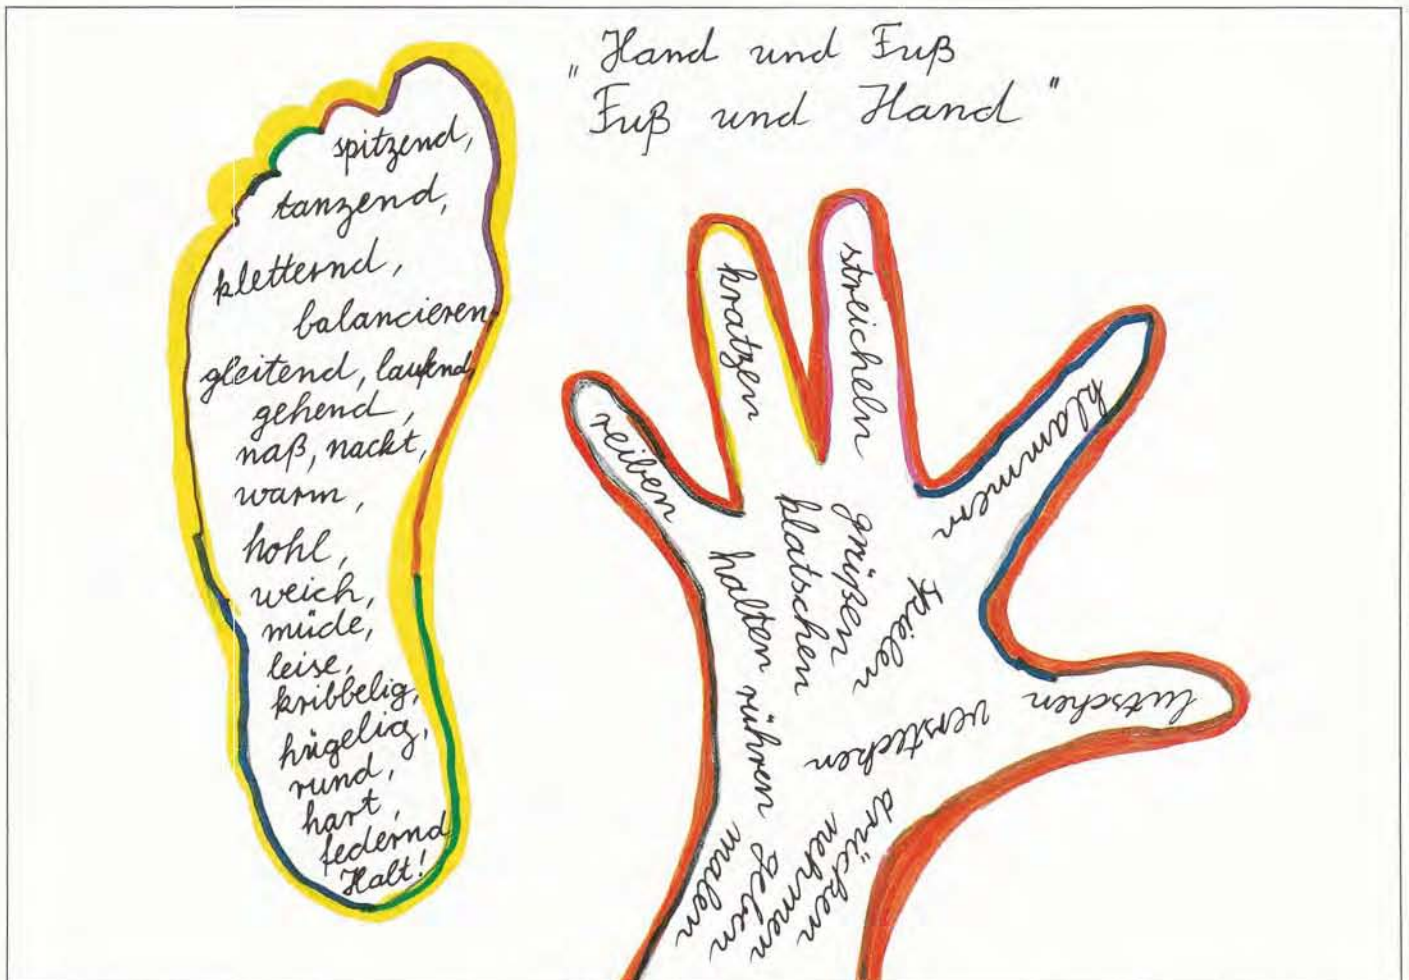 „Hand und Fuß
Fuß und Hand"
spitzend,
tanzend,
kletternd,
balancieren
gleitend, laufend
gehend,
naß, nackt,
warm,
hohl,
weich,
müde,
leise,
kribbelig,
hügelig,
rund,
hart,
federnd
Halt!
reiben
kratzen
streicheln
klammern
lutschen
grüßen
klatschen
spielen
halten rühren geben
verstecken
drücken
nehmen
malen